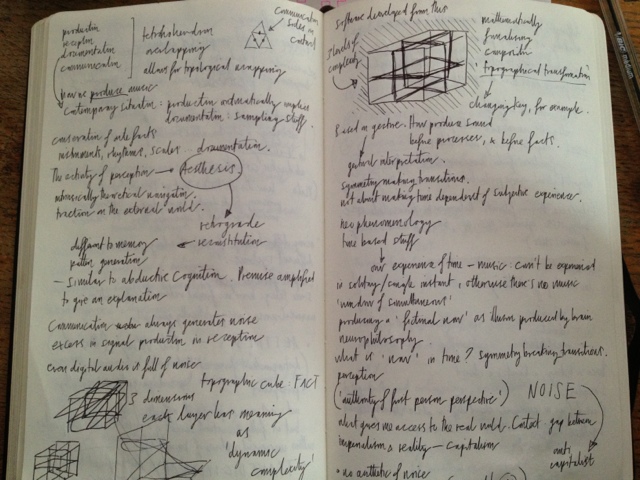 production
reception
documentation
communication
tetrahedron
overlapping
allows for topological mapping
Communication
sides in
contact
produce music
Contemporary situation : production automatically implies
documentation : sampling stuff.
conservation of artefacts
instruments, rhythms, scales documentation.
The activity of perception → Aesthesis
intrinsically theoretical navigation.
traction on the external world.
retrograde
reconstitution
different to memory
pattern generation
- Similar to abductive Cognition. Premise amplified
to give an explanation
Communication always generates noise
excess in signal production in reception
Even digital audio is full of noise
topographic cube : FACT
3 dimensions
each layer has meaning
as
'dynamic
complexity'
Software developed from this
3 levels of
complexity
mathematically
formalising
composition
'topographical transformation'
changing key, for example.
Based on gesture. How produce sound
before processes, & before facts.
gestural interpretation.
symmetry making transitions.
not about making time dependent of subjective experience.
neo phenomenology
time based stuff
our experience of time - music : can't be experienced
in solitary/single instant, otherwise there's no music
'window of simultaneous'
producing a 'fictional now' as illusion produced by brain
neurophilosophy.
what is 'now' in time? symmetry breaking transitions.
perception
('authority of first person perspective')
NOISE
what gives me access to the real world. Contact gap between
imperialism & reality - capitalism
anti
capitalist
• no aesthetic of noise